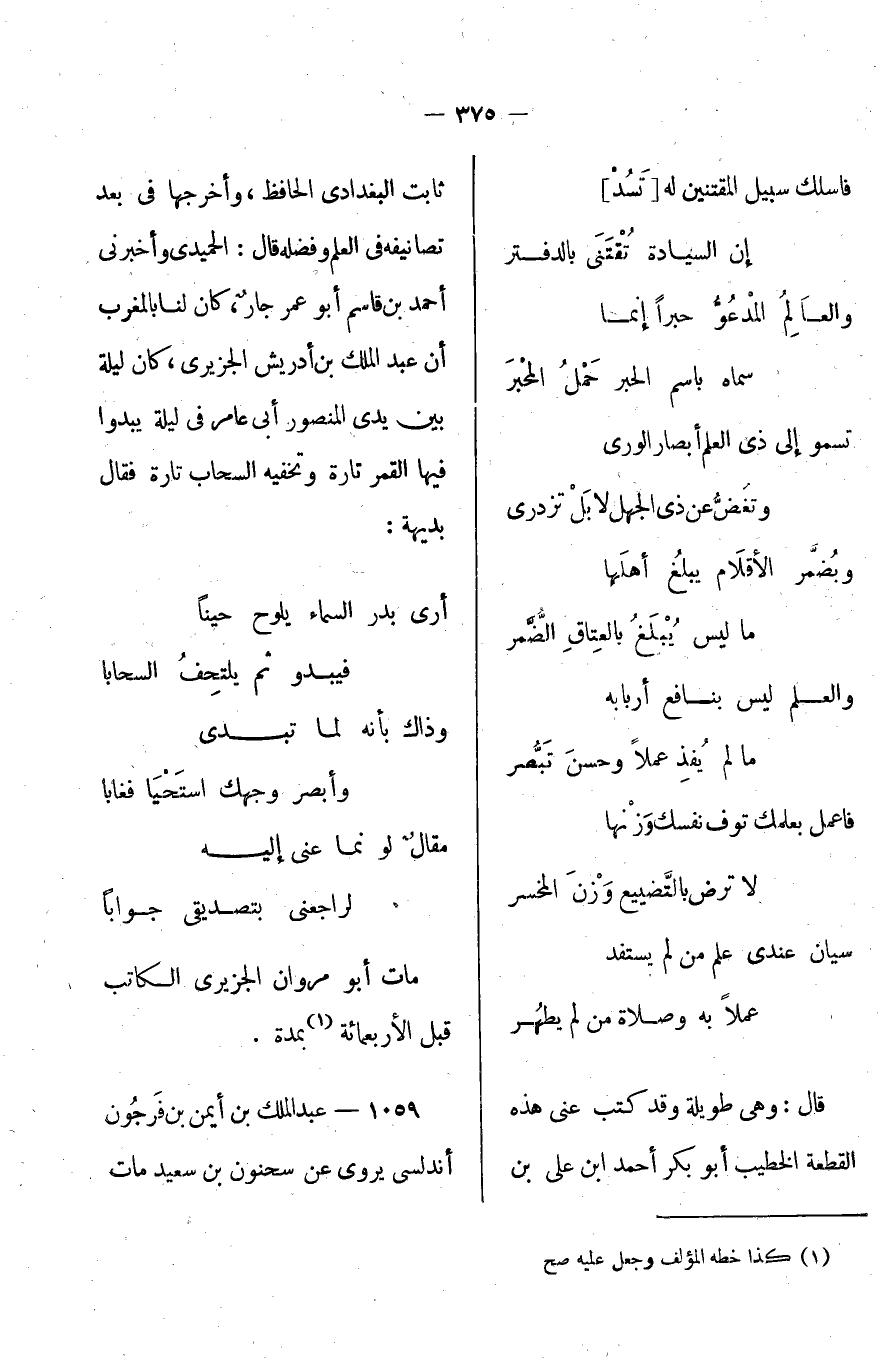 — ٣٧٥ —
فاسلك سبيل المقتنين له [تَسُدْ]
إن السيادة تُقْتَنَى بالدفتر
والعالِمُ المدْعُوُّ حبراً إنما
سماه باسم الحبر حَمْلُ المحْبَرَ
تسمو إلى ذى العلم أبصار الورى
وتغَضُّ عن ذى الجهل لا بَلْ تزدرى
وبُضمَّر الأقلَام يبلغُ أهلَها
ما ليس يُبْلَغُ بالعِتاقِ الضُّمَّر
والعلم ليس بنافع أربابه
ما لم يُفذِ عملاً وحسنَ تَبَصُّر
فاعمل بعلمك توف نفسك وَزْنها
لا ترض بالتَّضييع وَزْنَ المخسر
سيان عندى علم من لم يستفد
عملاً به وصلاة من لم يطهُر
قال : وهى طويلة وقد كتب عنى هذه
القطعة الخطيب أبو بكر أحمد ابن على بن
ثابت البغدادى الحافظ ، وأخرجها فى بعد
تصانيفه فى العلم وفضله قال : الحميدى وأخبرنى
أحمد بن قاسم أبو عمر جارٌ، كان لنا بالمغرب
أن عبد الملك بن أدريش الجزيرى ، كان ليلة
بين يدى المنصور أبى عامر فى ليلة يبدوا
فيها القمر تارة وتخفيه السحاب تارة فقال
بديهة :
أرى بدر السماء يلوح حيناً
فيبدو ثم يلتحِفُ السحابا
وذاك بأنه لما تبدى
وأبصر وجهك استَحْيَا فغابا
مقالٌ لو نما عنى إليه
لراجعنى بتصديقى جواباً
مات أبو مروان الجزيرى الكاتب
قبل الأربعمائة (١) بمدة .
١٠٥٩ — عبد الملك بن أيمن بن فَرجُون
أندلسى يروى عن سحنون بن سعيد مات
(١) كذا خطه المؤلف وجعل عليه صح